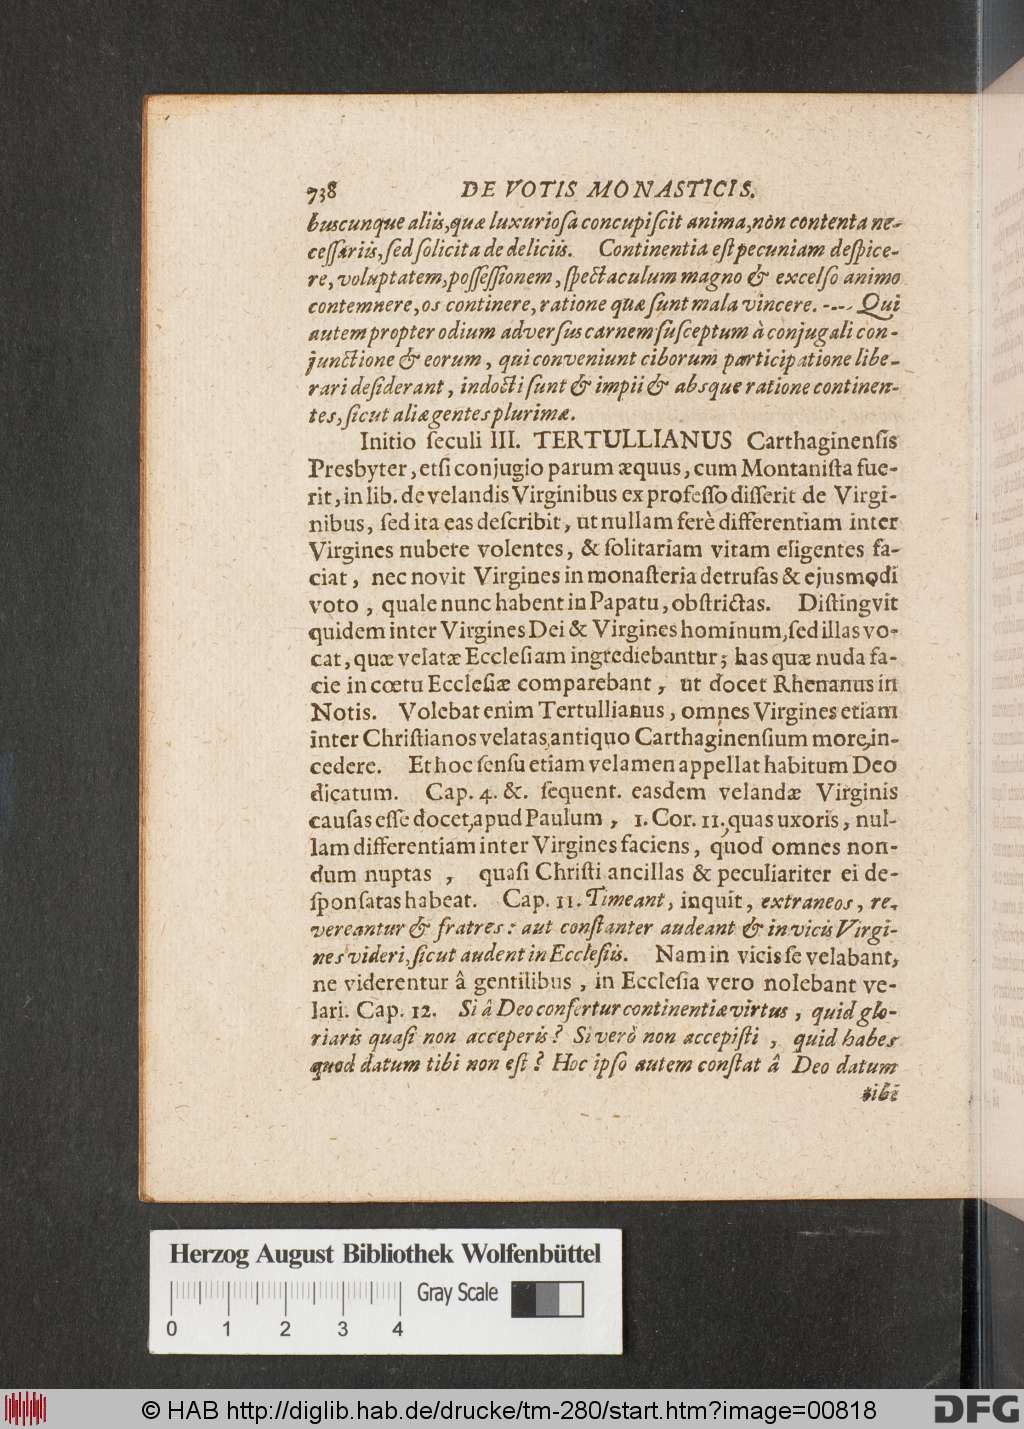 738 DE VOTIS MONASTICIS.
buscunque aliis, quæ luxuriosa concupiscit anima, non contenta ne-
cessariis, sed solicita de deliciis. Continentia est pecuniam despice-
re, voluptatem, possessionem, spectaculum magno & excelso animo
contemnere, os continere, ratione quæ sunt mala vincere. ---. Qui
autem propter odium adversus carnem susceptum à conjugali con-
junctione & eorum, qui conveniunt ciborum participatione libe-
rari desiderant, indocti sunt & impii & absque ratione continen-
tes, sicut aliæ gentes plurimæ.
Initio seculi III. TERTULLIANUS Carthaginensis
Presbyter, etsi conjugio parum æquus, cum Montanista fue-
rit, in lib. de velandis Virginibus ex professo disserit de Virgi-
nibus, sed ita eas describit, ut nullam ferè differentiam inter
Virgines nubere volentes, & solitariam vitam eligentes fa-
ciat, nec novit Virgines in monasteria detrusas & ejusmodi
voto, quale nunc habent in Papatu, obstrictas. Distingvit
quidem inter Virgines Dei & Virgines hominum, sed illas vo-
cat, quæ velatæ Ecclesiam ingrediebantur; has quæ nuda fa-
cie in cœtu Ecclesiæ comparebant, ut docet Rhenanus in
Notis. Volebat enim Tertullianus, omnes Virgines etiam
inter Christianos velatas, antiquo Carthaginensium more, in-
cedere. Et hoc sensu etiam velamen appellat habitum Deo
dicatum. Cap. 4. &. sequent. easdem velandæ Virginis
causas esse docet, apud Paulum, 1. Cor. 11. quas uxoris, nul-
lam differentiam inter Virgines faciens, quod omnes non-
dum nuptas, quasi Christi ancillas & peculiariter ei de-
sponsatas habeat. Cap. 11. Timeant, inquit, extraneos, re-
vereantur & fratres: aut constanter audeant & in vicis Virgi-
nes videri, sicut audent in Ecclesiis. Nam in vicis se velabant,
ne viderentur â gentilibus, in Ecclesia vero nolebant ve-
lari. Cap. 12. Si â Deo confertur continentiæ virtus, quid glo-
riaris quasi non acceperis? Si verò non accepisti, quid habes
quod datum tibi non est? Hoc ipso autem constat â Deo datum
tibi
Herzog August Bibliothek Wolfenbüttel
Gray Scale
0 1 2 3 4
© HAB http://diglib.hab.de/drucke/tm-280/start.htm?image=00818
DFG